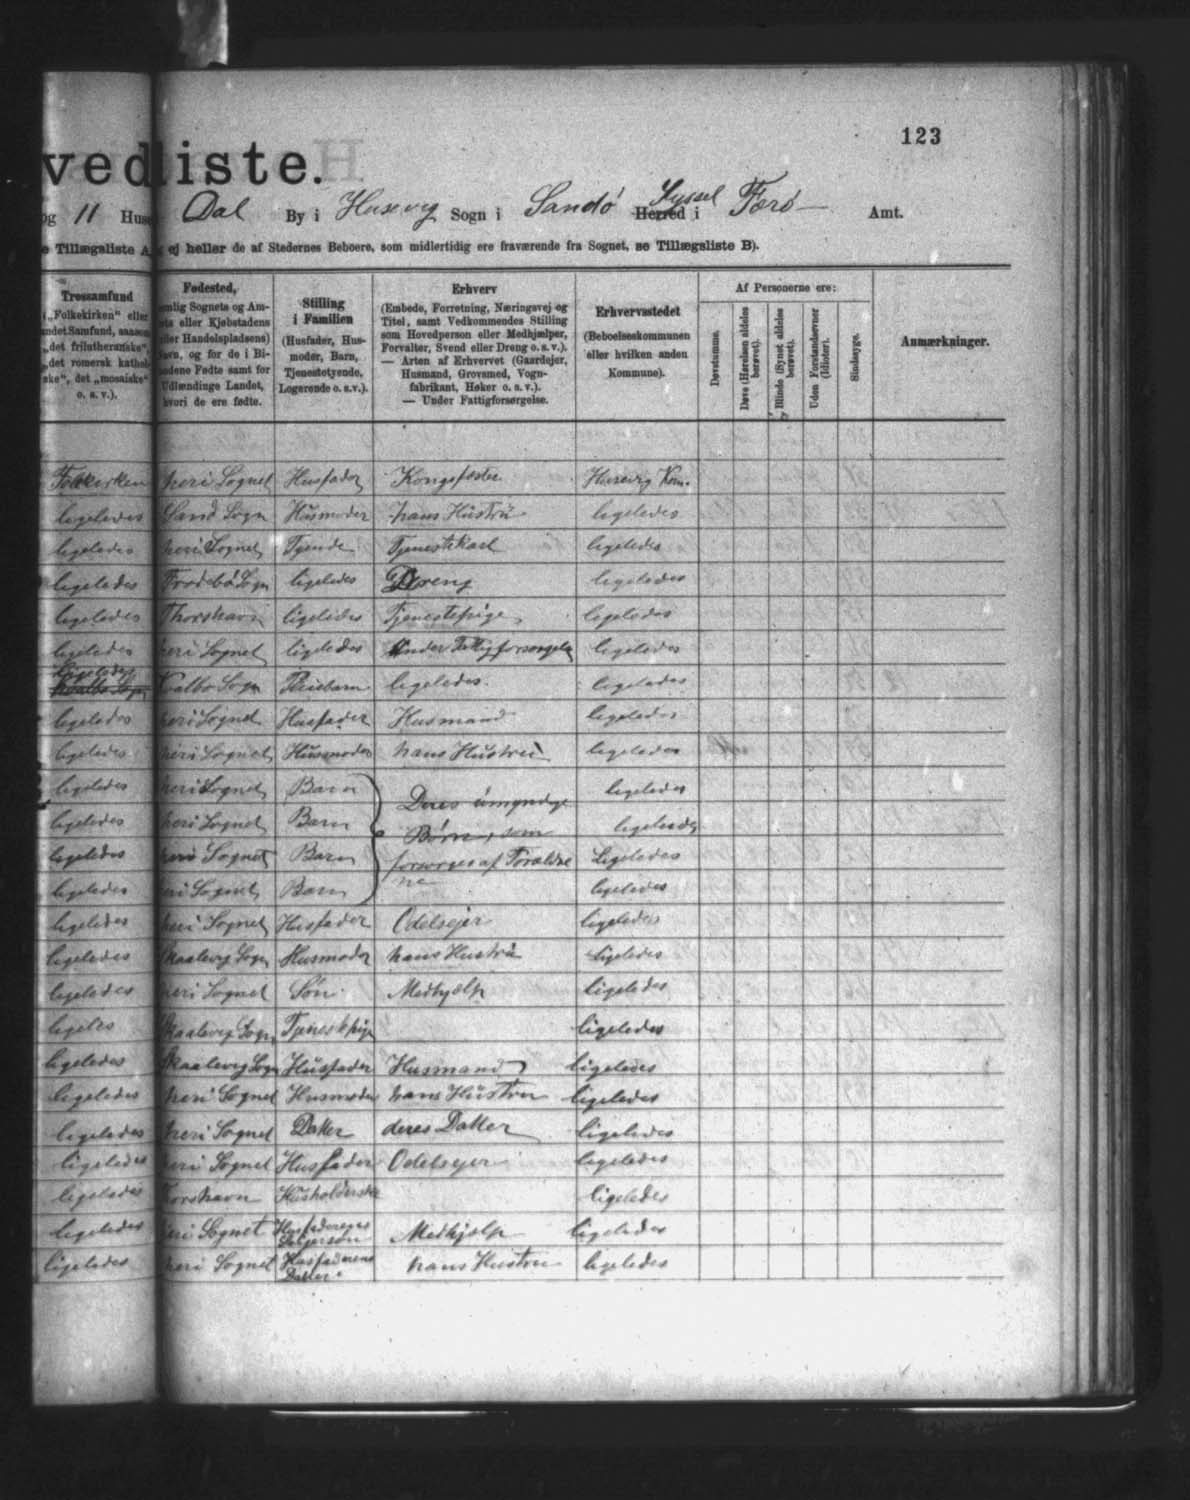 123
vedliste.
og 11 Huse Dal By i Husevig Sogn i Sandø Herred Syssel i Færø Amt.
e Tillægsliste A, ej heller de af Stedernes Beboere, som midlertidig ere fraværende fra Sognet, se Tillægsliste B).
Trossamfund
(„Folkekirken“ eller
andet Samfund, saasom
„det frilutheranske“,
„det romersk kathol-
ske“, det „mosaiske“
o. s. v.).
Fødested,
nemlig Sognets og Am-
ts eller Kjøbstadens
eller Handelspladsens)
Navn, og for de i Bi-
ledene Fødte samt for
Udlændinge Landet,
hvori de ere fødte.
Stilling
i Familien
(Husfader, Hus-
moder, Barn,
Tjenestetyende,
Logerende o. s. v.).
Erhverv
(Embede, Forretning, Næringsvej og
Titel, samt Vedkommendes Stilling
som Hovedperson eller Medhjælper,
Forvalter, Svend eller Dreng o. s. v.).
— Arten af Erhvervet (Gaardejer,
Husmand, Grovsmed, Vogn-
fabrikant, Høker o. s. v.).
— Under Fattigforsørgelse.
Erhvervsstedet
(Beboelseskommunen
eller hvilken anden
Kommune).
Af Personerne ere:
Døvstumme.
Døve (Hørelsen aldeles
berøvet).
Blinde (Synet aldeles
berøvet).
Uden Forstandsevner
(Idioter).
Sindssyge.
Anmærkninger.
Folkekirken heri Sognet Husfader Kongsfæster Husevig Kom.
ligeledes Sand Sogn Husmoder hans Hustru ligeledes
ligeledes heri Sognet Tyende Tjenestekarl ligeledes
ligeledes Frodebø Sogn ligeledes Dreng ligeledes
ligeledes Thorshavn ligeledes Tjenestepige ligeledes
ligeledes heri Sognet ligeledes Under Fattigforsørgelse ligeledes
Ligeledes
Kvalbø Sogn Kvalbø Sogn Pleiebarn ligeledes. ligeledes
ligeledes heri Sognet Husfader Husmand ligeledes
ligeledes heri Sognet Husmoder hans Hustru ligeledes
ligeledes heri Sognet Barn Deres umyndige ligeledes
ligeledes heri Sognet Barn Børn, som ligeledes
ligeledes heri Sognet Barn forsørges af Forældre Ligeledes
ligeledes heri Sognet Barn ne ligeledes
ligeledes heri Sognet Husfader Odelsejer ligeledes
ligeledes Skaalevig Sogn Husmoder hans Hustru Ligeledes
ligeledes heri Sognet Søn Medhjælp ligeledes
ligeles Skaalevig Sogn Tjenestepige ligeledes
ligeledes Skaalevig Sogn Husfader Husmand ligeledes
ligeledes heri Sognet Husmoder hans Hustru ligeledes
ligeledes heri Sognet Datter deres Datter ligeledes
ligeledes heri Sognet Husfader Odelsejer ligeledes
ligeledes Thorshavn Husholderske ligeledes
ligeledes heri Sognet Husfaderens Svigersøn Medhjælp ligeledes
ligeledes heri Sognet Husfaderens Datter hans Hustru ligeledes